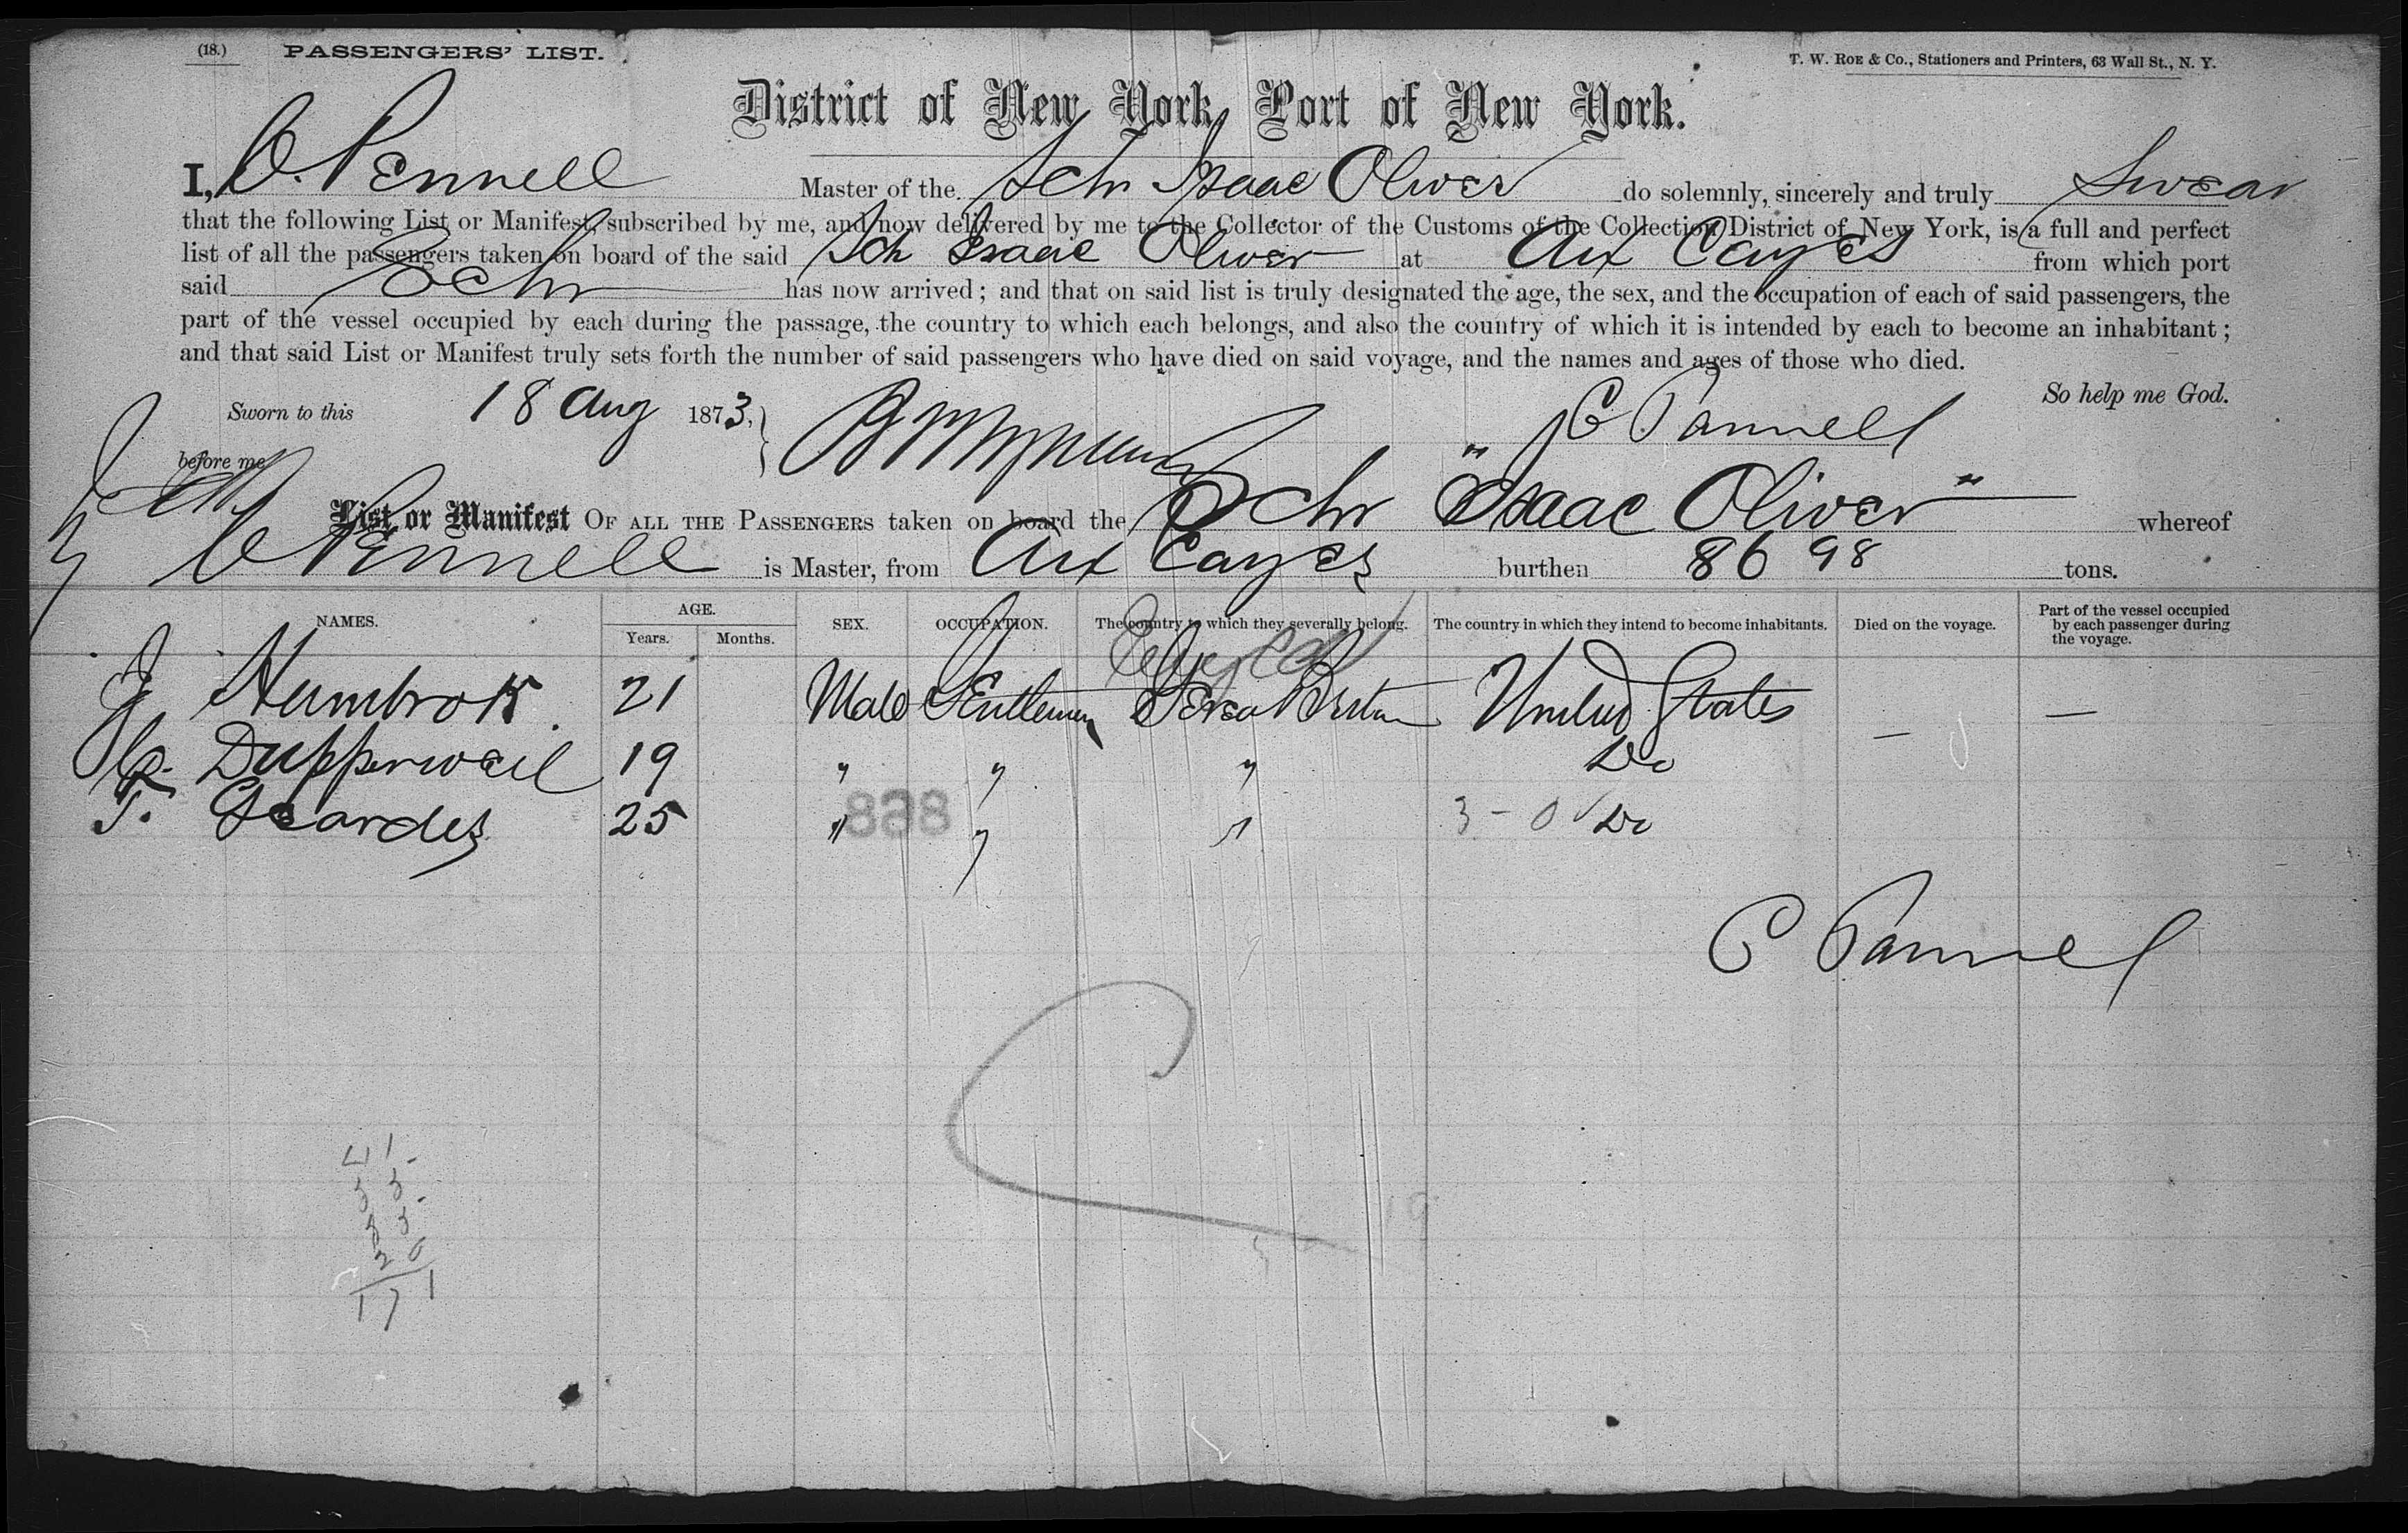 (18.) PASSENGERS' LIST.
T. W. ROE & Co., Stationers and Printers, 63 Wall St., N. Y.
District of New York, Port of New York.
I, C. Pennell Master of the Schr Isaac Oliver do solemnly, sincerely and truly Swear
that the following List or Manifest, subscribed by me, and now delivered by me to the Collector of the Customs of the Collection District of New York, is a full and perfect
list of all the passengers taken on board of the said Sch Isaac Oliver at Aux Cayes from which port
said Schr has now arrived; and that on said list is truly designated the age, the sex, and the occupation of each of said passengers, the
part of the vessel occupied by each during the passage, the country to which each belongs, and also the country of which it is intended by each to become an inhabitant;
and that said List or Manifest truly sets forth the number of said passengers who have died on said voyage, and the names and ages of those who died.
So help me God.
Sworn to this 18 Aug 1873,
C Pannell
before me
List or Manifest OF ALL THE PASSENGERS taken on board the Schr "Isaac Oliver" whereof
C Pennell is Master, from Aux Cayes burthen 86 98 tons.
NAMES. AGE. Years. Months. SEX. OCCUPATION. The country to which they severally belong. The country in which they intend to become inhabitants. Died on the voyage. Part of the vessel occupied by each passenger during the voyage.
J 21 Male Gentleman Great Britain United States — —
19 " " " Do
T. 25 " " " Do
868
3 - 0
C Pannell
20
171